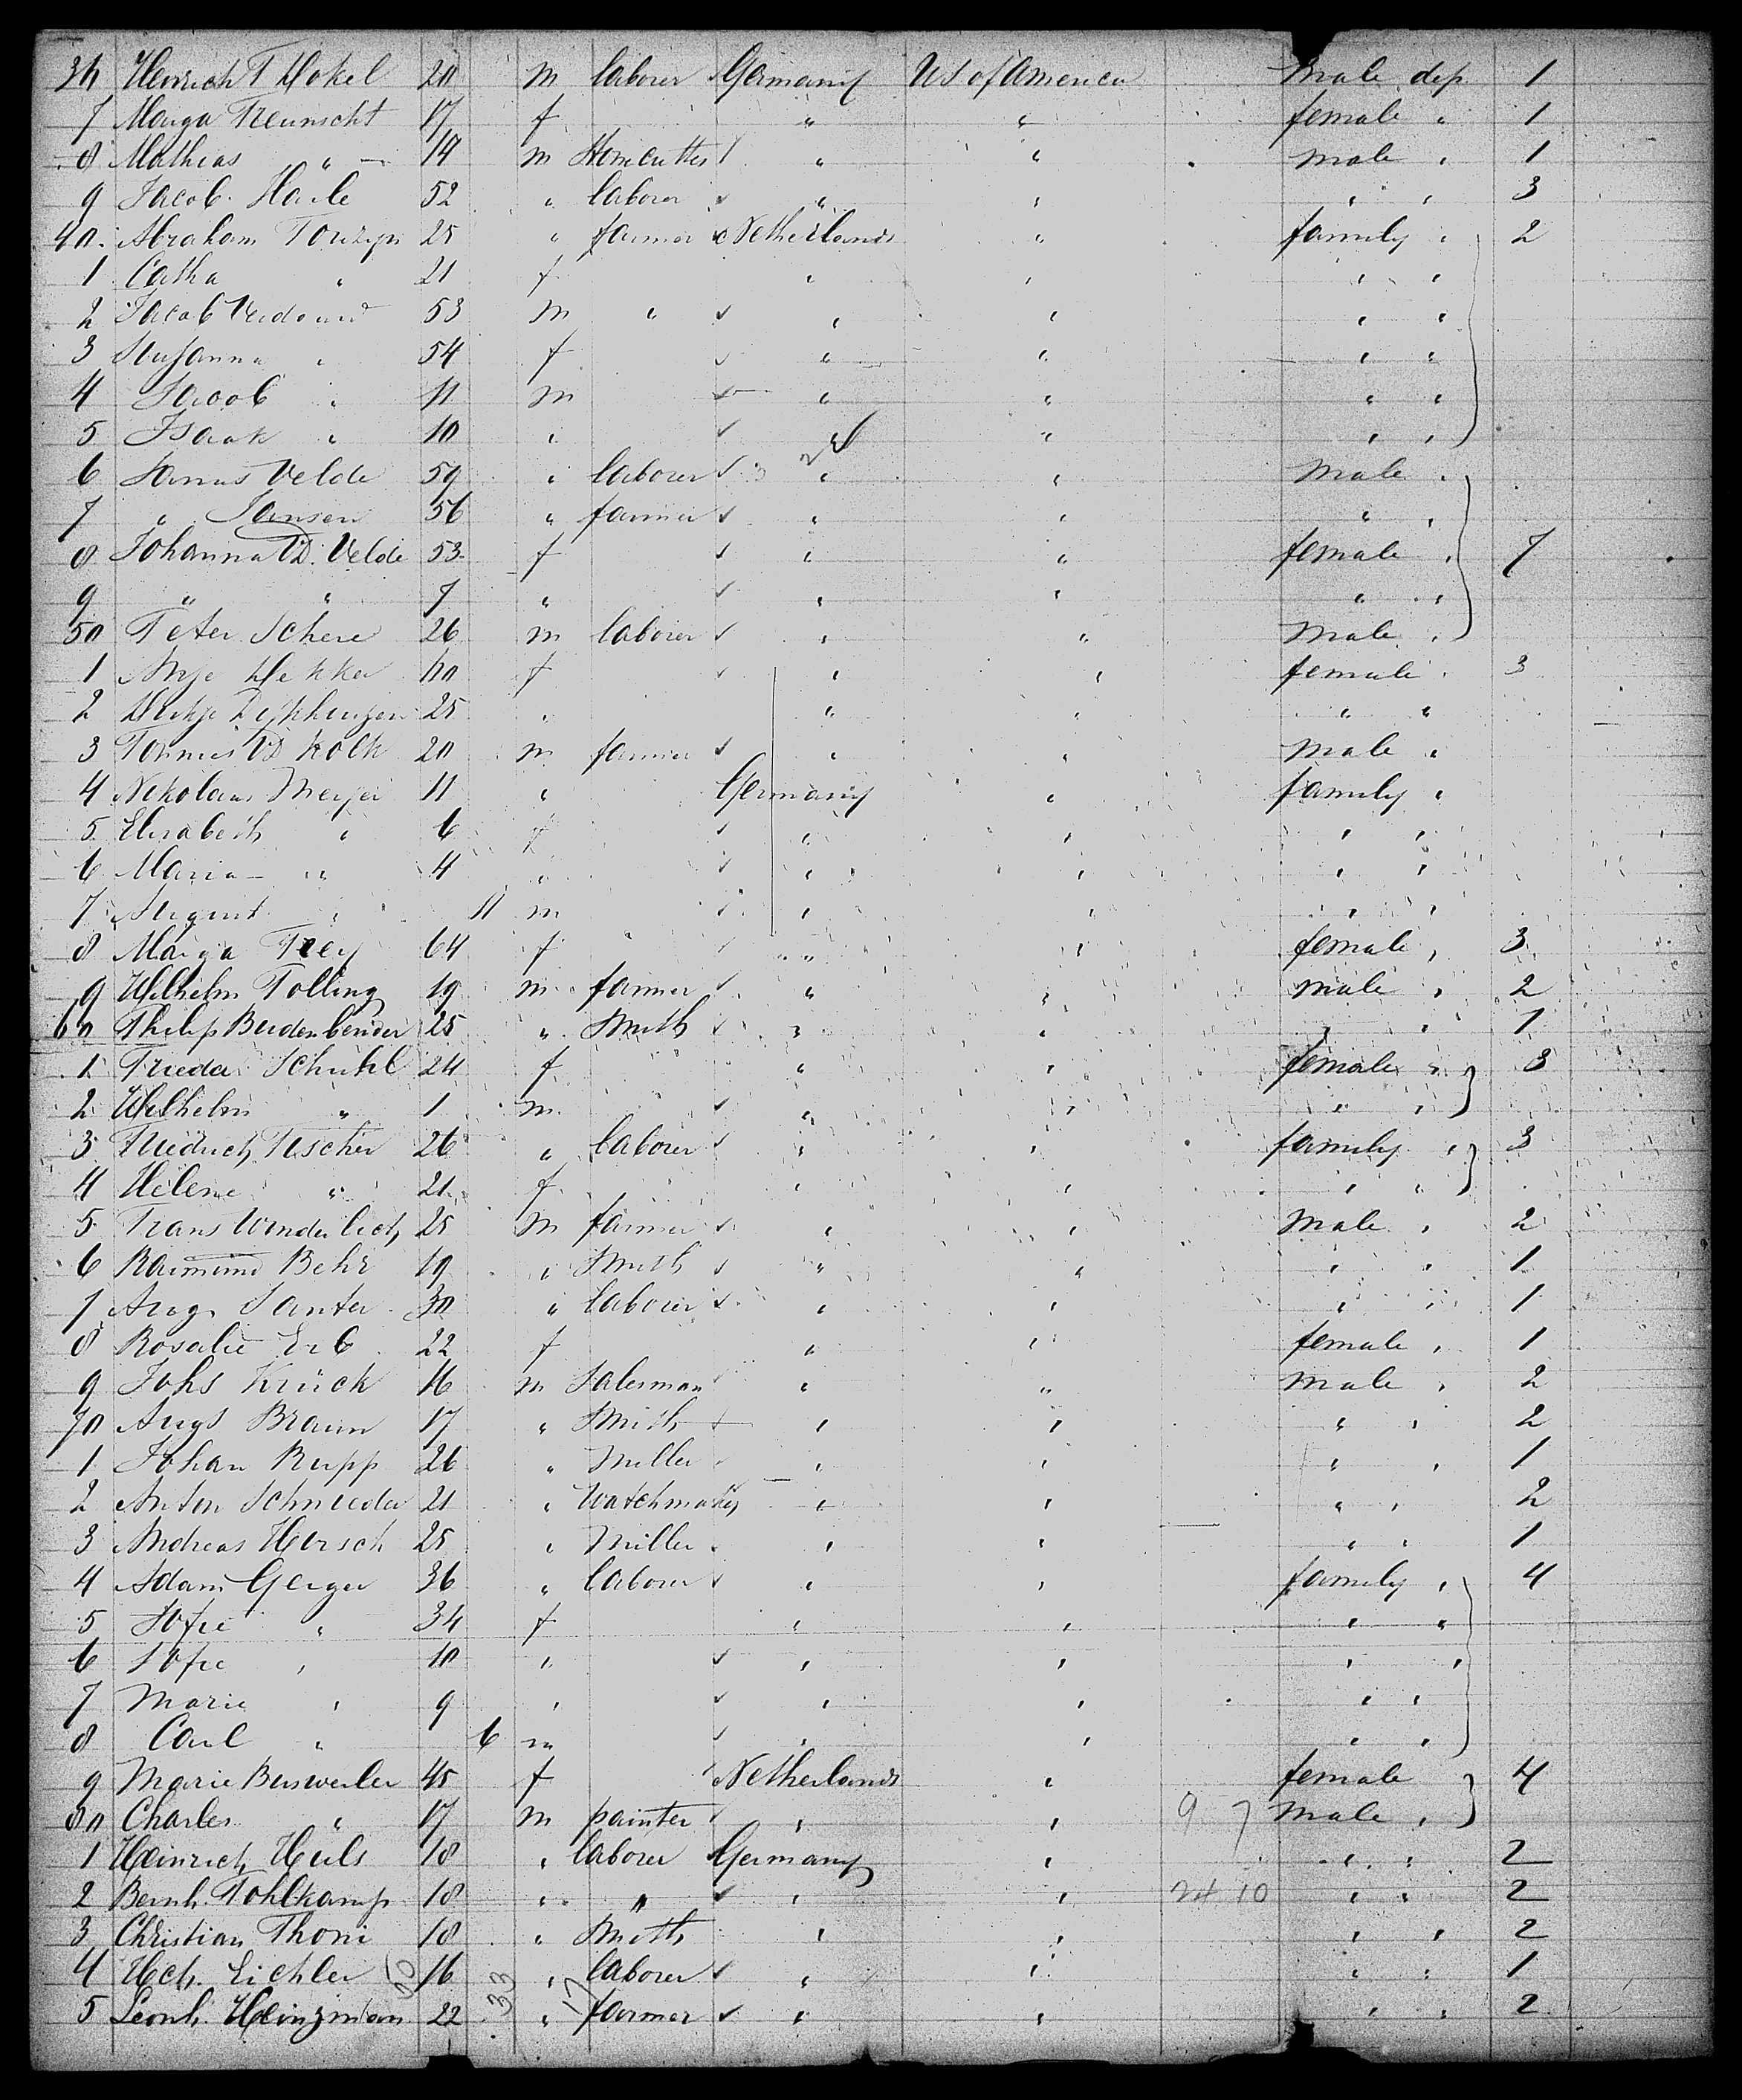 36 Heinrich Hokel 20 m laborer Germany US of America Male dep. 1
7 Marga Freunscht 17 f " " female " 1
8 Mathias " 19 m stonecutter " " male " 1
9 Jacob Haile 52 " laborer " " " " 3
40 Abraham 25 " farmer Netherlands " family " 2
1 Catha " 21 f " " " "
2 Jacob 53 m " " " " "
3 Susanna " 54 f " " " "
4 Jacob " 11 m " " " "
5 Isaak " 10 " " " " "
6 Velde 59 " laborer " " Male "
7 " Jansen 56 " farmer " " " "
8 Johanna VD. Velde 53 f " " female " 7
9 " " 7 " " " " "
50 Peter Schere 26 m laborer " " Male "
1 Hekker f " " female " 3
2 25 " " " " "
3 VD Kolk 20 m farmer " " Male "
4 Nikolaus Meyer 11 " Germany " family "
5 Elisabeth " 6 f " " " "
6 Maria " 4 " " " " "
7 August " 11 m " " " "
8 Marga Frey 64 f " " female " 3
9 Wilhelm Tolling 19 m farmer " " male " 2
60 Philip Beidenbender 25 " Smith " " " " 1
1 Frieda Schuhl 24 f " " female " 3
2 Wilhelm " 1 m " " " "
3 Friedrich Fischer 26 " laborer " " family " 3
4 Helene " 21 f " " " "
5 Franz Wunderlich 25 m farmer " " Male " 2
6 Raimund Behr 19 " Smith " " " " 1
7 Aug. Santer 30 " laborer " " " " 1
8 Rosalie Erb 22 f " " female " 1
9 Johs Krück 16 m Salesman " " Male " 2
70 Augs Braun 17 " Smith " " " " 2
1 Johan Rupp 26 " Miller " " " " 1
2 Anton Schnieder 21 " Watchmaker " " " " 2
3 Andreas Hirsch 25 " Miller " " " " 1
4 Adam Geiger 36 " laborer " " family " 4
5 Sofie " 34 f " " " "
6 Sofie " 10 " " " " "
7 Marie " 9 " " " " "
8 Carl " 6 m " " " "
9 Marie Busweiler 45 f Netherlands " female 4
80 Charles " 17 m painter " " 9 7 Male "
1 Heinrich Huls 18 " laborer Germany " " " 2
2 Bernh. Pohlkamp 18 " " " " 24 10 " " 2
3 Christian Thoni 18 " Smith " " " " 2
4 Hch. Eichler 16 " laborer " " " " 1
5 Leonh. Heinzmann 22 33 " 17 farmer " " " " 2